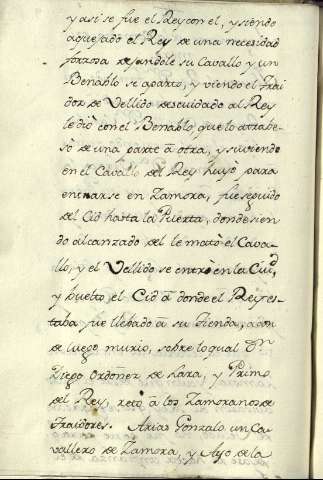 y asi se fue el Rey con el, y siendo
aquejado el Rey de una necesidad
forzosa dejandole su Cavallo y un
Benablo se aparto, y viendo el trai
dor de Vellido descuidado al Rey
le diò con el Benablo, que lo atrabe-
sò de una parte â otra, y subiendo
en el Cavallo del Rey huyò para
entrarse en Zamora, fue seguido
del Cid hasta la Puerta, donde sien
do alcanzado del le matò el Cava-
llo, y el Vellido se entrò en la Ciud,
y buelto el Cid â donde el Rey es-
taba fue llebado â su tienda, adon
de luego murio, sobre lo qual Dn
Diego Ordoñez de Lara, y Primo
del Rey, retò â los Zamoranos de
traidores. Arias Gonzalo un Ca-
vallero de Zamora, y Ayo de la